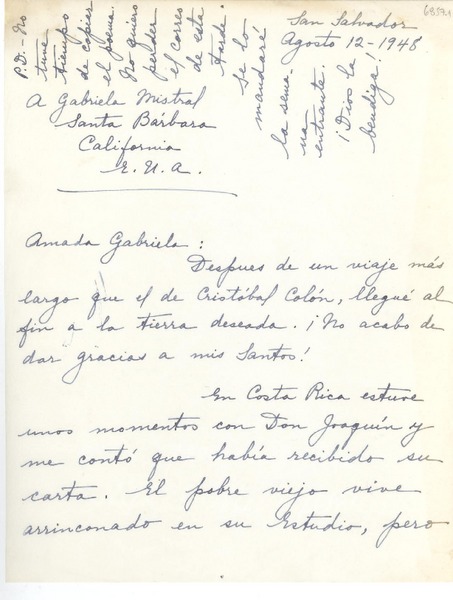 San Salvador
Agosto 12-1948
A Gabriela Mistral
Santa Bárbara
California
E.U.A.
P.D.-No
tuve
tiempo
de copiar
el poema.
No quiero
perder
el correo
de esta
tarde.
Se lo
mandaré
la sema
na
entrante.
¡Dios la
bendiga!
Amada Gabriela:
Despues de un viaje más
largo que el de Cristóbal Colón, llegué al
fin a la tierra deseada. ¡No acabo de
dar gracias a mis Santos!
En Costa Rica estuve
unos momentos con Don Joaquín y
me contó que había recibido su
carta. El pobre viejo vive
arrinconado en su Estudio, pero